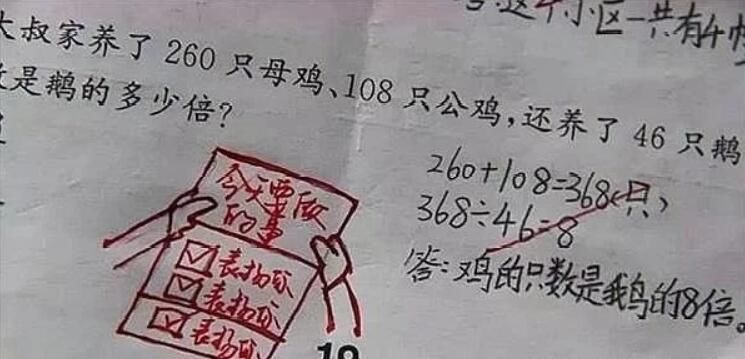 这个小区一共有4
大叔家养了260只母鸡、108只公鸡,还养了46只鹅
是鹅的多少倍?
260+108=368(只)
368÷46=8
答:鸡的只数是我鸟的8倍。
今天要做
的事
表扬你
表扬你
表扬你
19